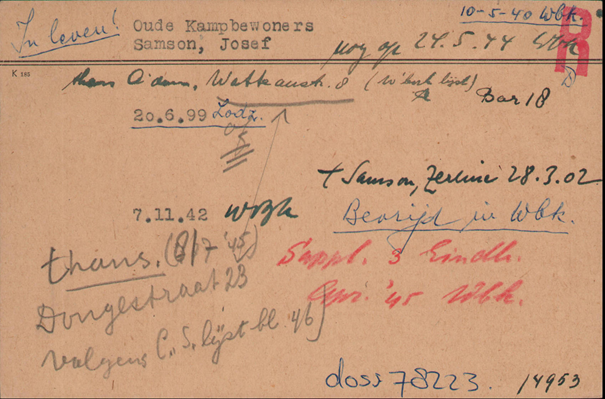 In leven!
Oude Kampbewoners
10-5-40 Wbk.
Samson, Josef
nog op 24.5.44 Wbk
K 105
thans A'dam, Watteaustr. 8 (W'bork lijst)
Bar 18
20.6.99 Lodz.
+ Samson, Zerline 28.3.02
7.11.42 WBK
Bevrijd in Wbk.
thans. (8/7 '45)
Suppl. 3 Eindh.
Dongestraat 23
Apr. '45 Wbk.
volgens C.S. lijst bl. 46)
doss 78223.
14953